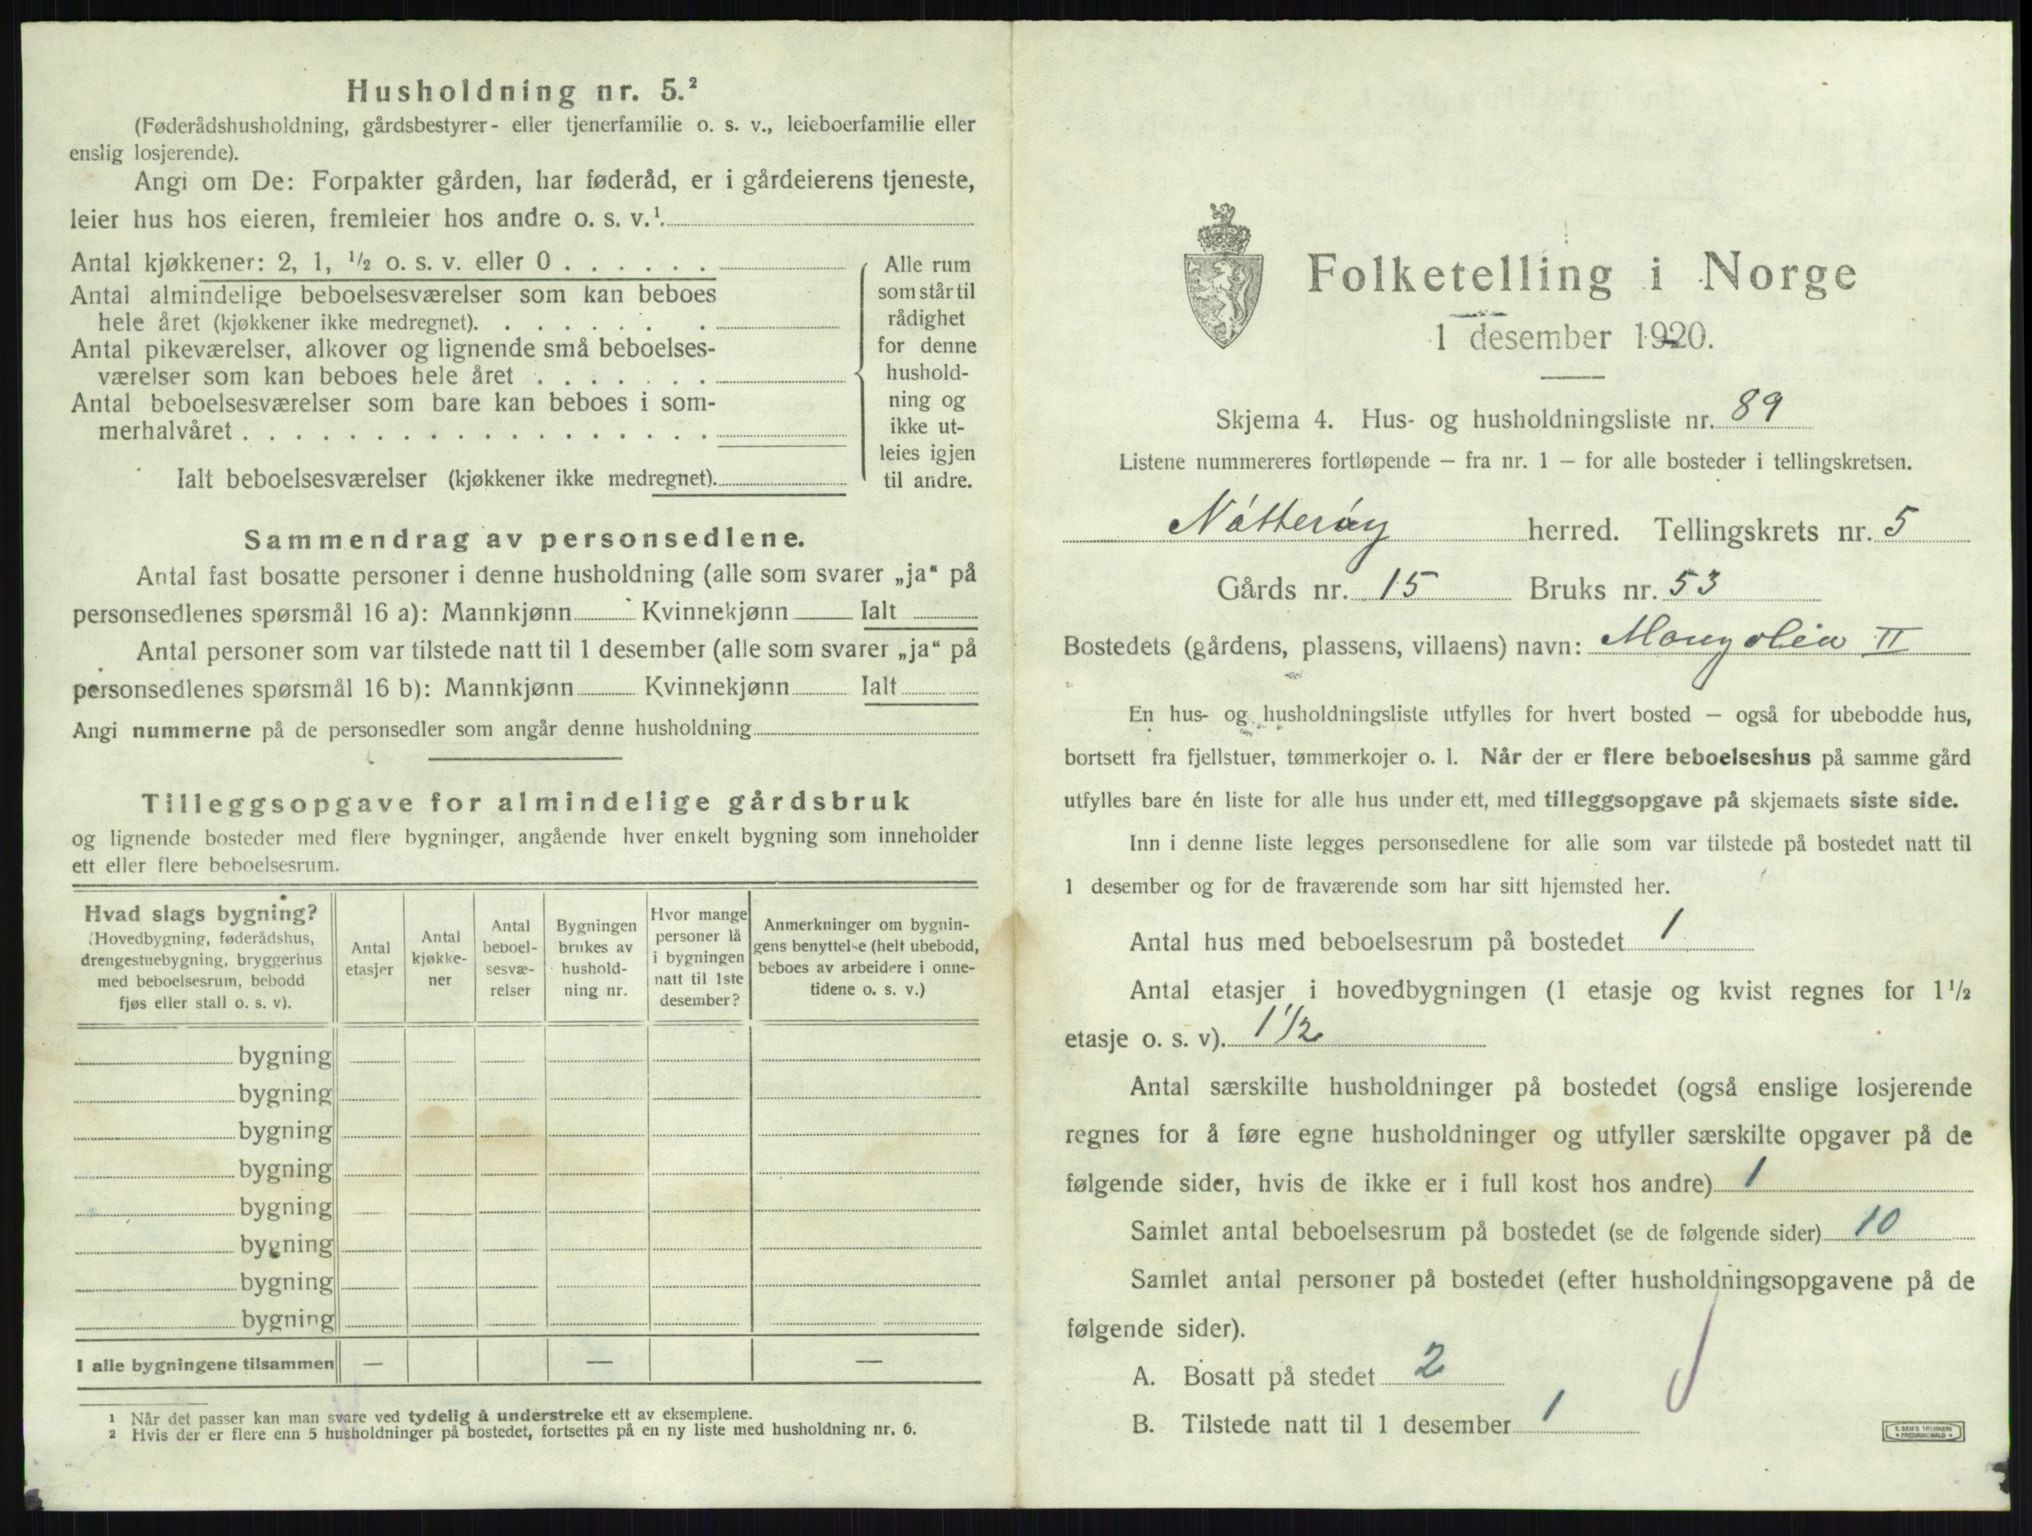 Husholdning nr. 5.²
(Føderådshusholdning, gårdsbestyrer- eller tjenerfamilie o. s. v., leieboerfamilie eller
enslig losjerende).
Angi om De: Forpakter gården, har føderåd, er i gårdeierens tjeneste,
leier hus hos eieren, fremleier hos andre o. s. v.¹
Antal kjøkkener: 2, 1, ½ o. s. v. eller 0
Antal almindelige beboelsesværelser som kan beboes
hele året (kjøkkener ikke medregnet).
Antal pikeværelser, alkover og lignende små beboelses-
værelser som kan beboes hele året
Antal beboelsesværelser som bare kan beboes i som-
merhalvåret
Ialt beboelsesværelser (kjøkkener ikke medregnet).
Alle rum
som står til
rådighet
for denne
hushold-
ning og
ikke ut-
leies igjen
til andre.
Sammendrag av personsedlene.
Antal fast bosatte personer i denne husholdning (alle som svarer „ja“ på
personsedlenes spørsmål 16 a): Mannkjønn Kvinnekjønn Ialt
Antal personer som var tilstede natt til 1 desember (alle som svarer „ja“ på
personsedlenes spørsmål 16 b): Mannkjønn Kvinnekjønn Ialt
Angi nummerne på de personsedler som angår denne husholdning
Tilleggsopgave for almindelige gårdsbruk
og lignende bosteder med flere bygninger, angående hver enkelt bygning som inneholder
ett eller flere beboelsesrum.
Hvad slags bygning?
(Hovedbygning, føderådshus,
drengestuebygning, bryggerhus
med beboelsesrum, bebodd
fjøs eller stall o. s. v).
Antal
etasjer
Antal
kjøkke-
ner
Antal
beboel-
sesvæ-
relser
Bygningen
brukes av
hushold-
ning nr.
Hvor mange
personer lå
i bygningen
natt til 1ste
desember?
Anmerkninger om bygnin-
gens benyttelse (helt ubebodd,
beboes av arbeidere i onne-
tidene o. s. v.)
bygning
bygning
bygning
bygning
bygning
bygning
bygning
bygning
I alle bygningene tilsammen — — —
1 Når det passer kan man svare ved tydelig å understreke ett av eksemplene.
2 Hvis der er flere enn 5 husholdninger på bostedet, fortsettes på en ny liste med husholdning nr. 6.
Folketelling i Norge
1 desember 1920.
Skjema 4. Hus- og husholdningsliste nr. 89
Listene nummereres fortløpende – fra nr. 1 – for alle bosteder i tellingskretsen.
Nøtterøy herred. Tellingskrets nr. 5
Gårds nr. 15 Bruks nr. 53
Bostedets (gårdens, plassens, villaens) navn: Mongolia II
En hus- og husholdningsliste utfylles for hvert bosted – også for ubebodde hus,
bortsett fra fjellstuer, tømmerkojer o. l. Når der er flere beboelseshus på samme gård
utfylles bare én liste for alle hus under ett, med tilleggsopgave på skjemaets siste side.
Inn i denne liste legges personsedlene for alle som var tilstede på bostedet natt til
1 desember og for de fraværende som har sitt hjemsted her.
Antal hus med beboelsesrum på bostedet 1
Antal etasjer i hovedbygningen (1 etasje og kvist regnes for 1½
etasje o. s. v). 1½
Antal særskilte husholdninger på bostedet (også enslige losjerende
regnes for å føre egne husholdninger og utfyller særskilte opgaver på de
følgende sider, hvis de ikke er i full kost hos andre) 1
Samlet antal beboelsesrum på bostedet (se de følgende sider) 10
Samlet antal personer på bostedet (efter husholdningsopgavene på de
følgende sider).
A. Bosatt på stedet 2
B. Tilstede natt til 1 desember 1